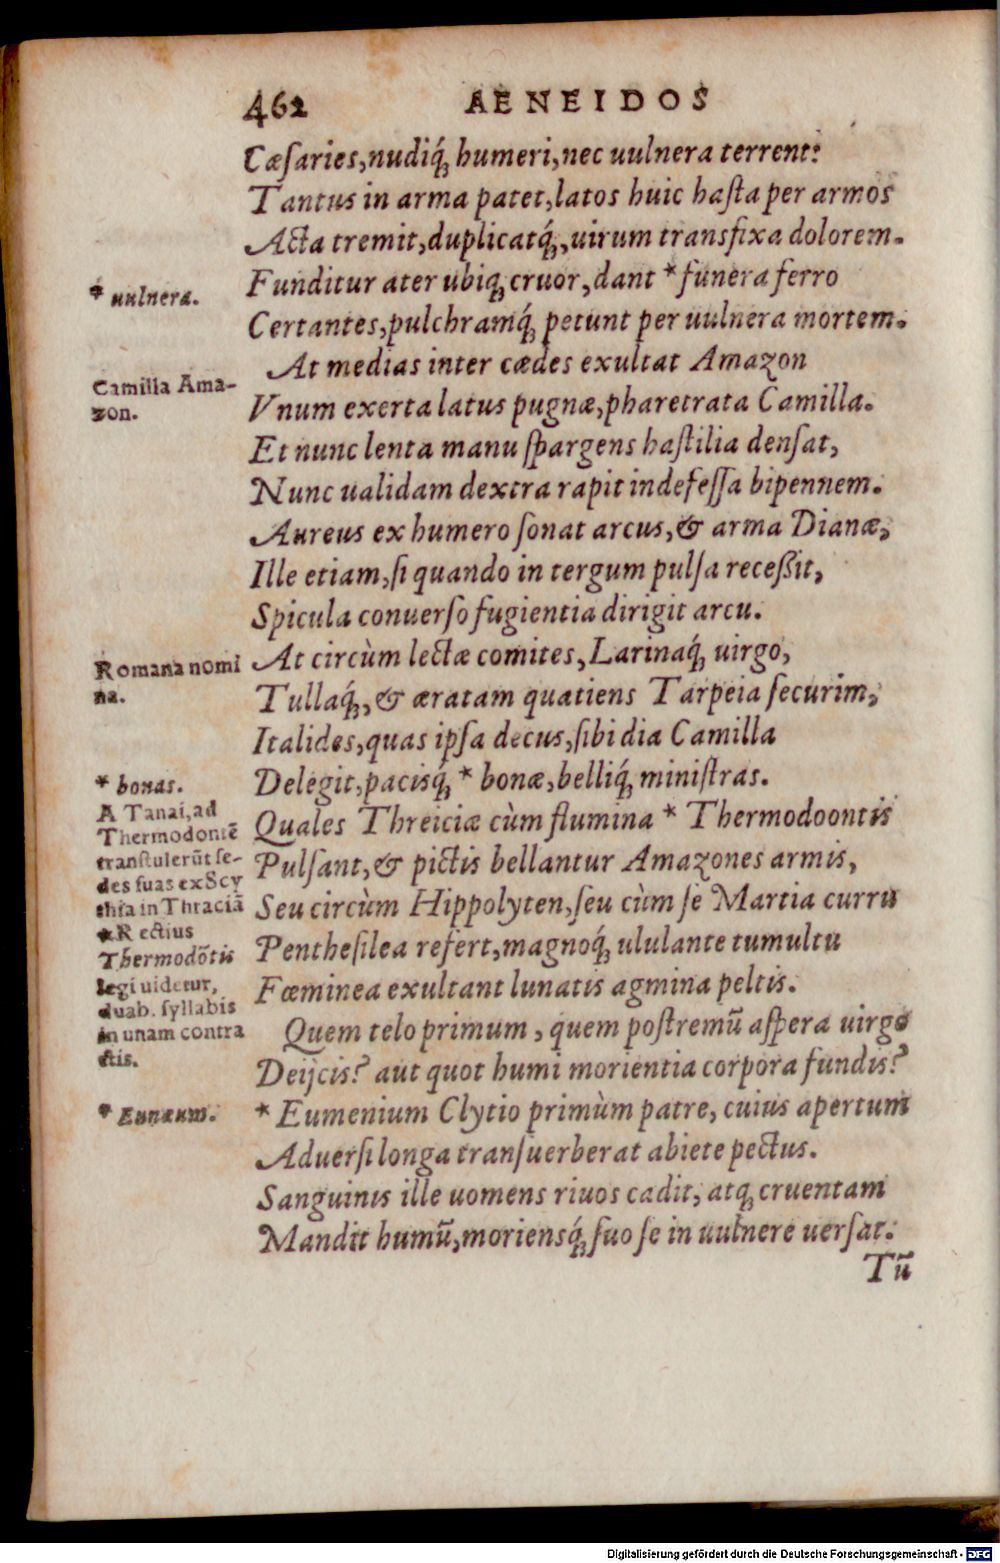 462 AENEIDOS
Cæſaries, nudiq́; humeri, nec uulnera terrent:
Tantus in arma patet, latos huic haſta per armos
Acta tremit, duplicatq́;, uirum transfixa dolorem.
Funditur ater ubiq; cruor, dant * funera ferro
* uulnera.
Certantes, pulchramq́; petunt per uulnera mortem.
At medias inter cædes exultat Amazon
Camilla Ama-
zon.
Vnum exerta latus pugnæ, pharetrata Camilla.
Et nunc lenta manu ſpargens haſtilia denſat,
Nunc ualidam dextra rapit indefeſſa bipennem.
Aureus ex humero ſonat arcus, & arma Dianæ,
Ille etiam, ſi quando in tergum pulſa receßit,
Spicula conuerſo fugientia dirigit arcu.
At circùm lectæ comites, Larinaq́; uirgo,
Romana nomi
na.
Tullaq́;, & æratam quatiens Tarpeia ſecurim,
Italides, quas ipſa decus, ſibi dia Camilla
Delegit, pacisq́; * bonæ, belliq́; miniſtras.
* bonas.
Quales Threiciæ cùm flumina * Thermodoontis
Pulſant, & pictis bellantur Amazones armis,
Seu circùm Hippolyten, ſeu cùm ſe Martia curru
Pentheſilea refert, magnoq́; ululante tumultu
Fœminea exultant lunatis agmina peltis.
A Tanai, ad
Thermodontē
tranſtulerūt ſe-
des ſuas ex Scy
thia in Thraciā
* Rectius
Thermodōtis
legi uidetur,
duab. ſyllabis
in unam contra
ctis.
Quem telo primum, quem poſtremū aſpera uirgo
Deijcis? aut quot humi morientia corpora fundis?
* Eumenium Clytio primùm patre, cuius apertum
* Eunæum.
Aduerſi longa tranſuerberat abiete pectus.
Sanguinis ille uomens riuos cadit, atq; cruentam
Mandit humū, moriensq́; ſuo ſe in uulnere uerſat.
Tū
Digitalisierung gefördert durch die Deutsche Forschungsgemeinschaft - DFG